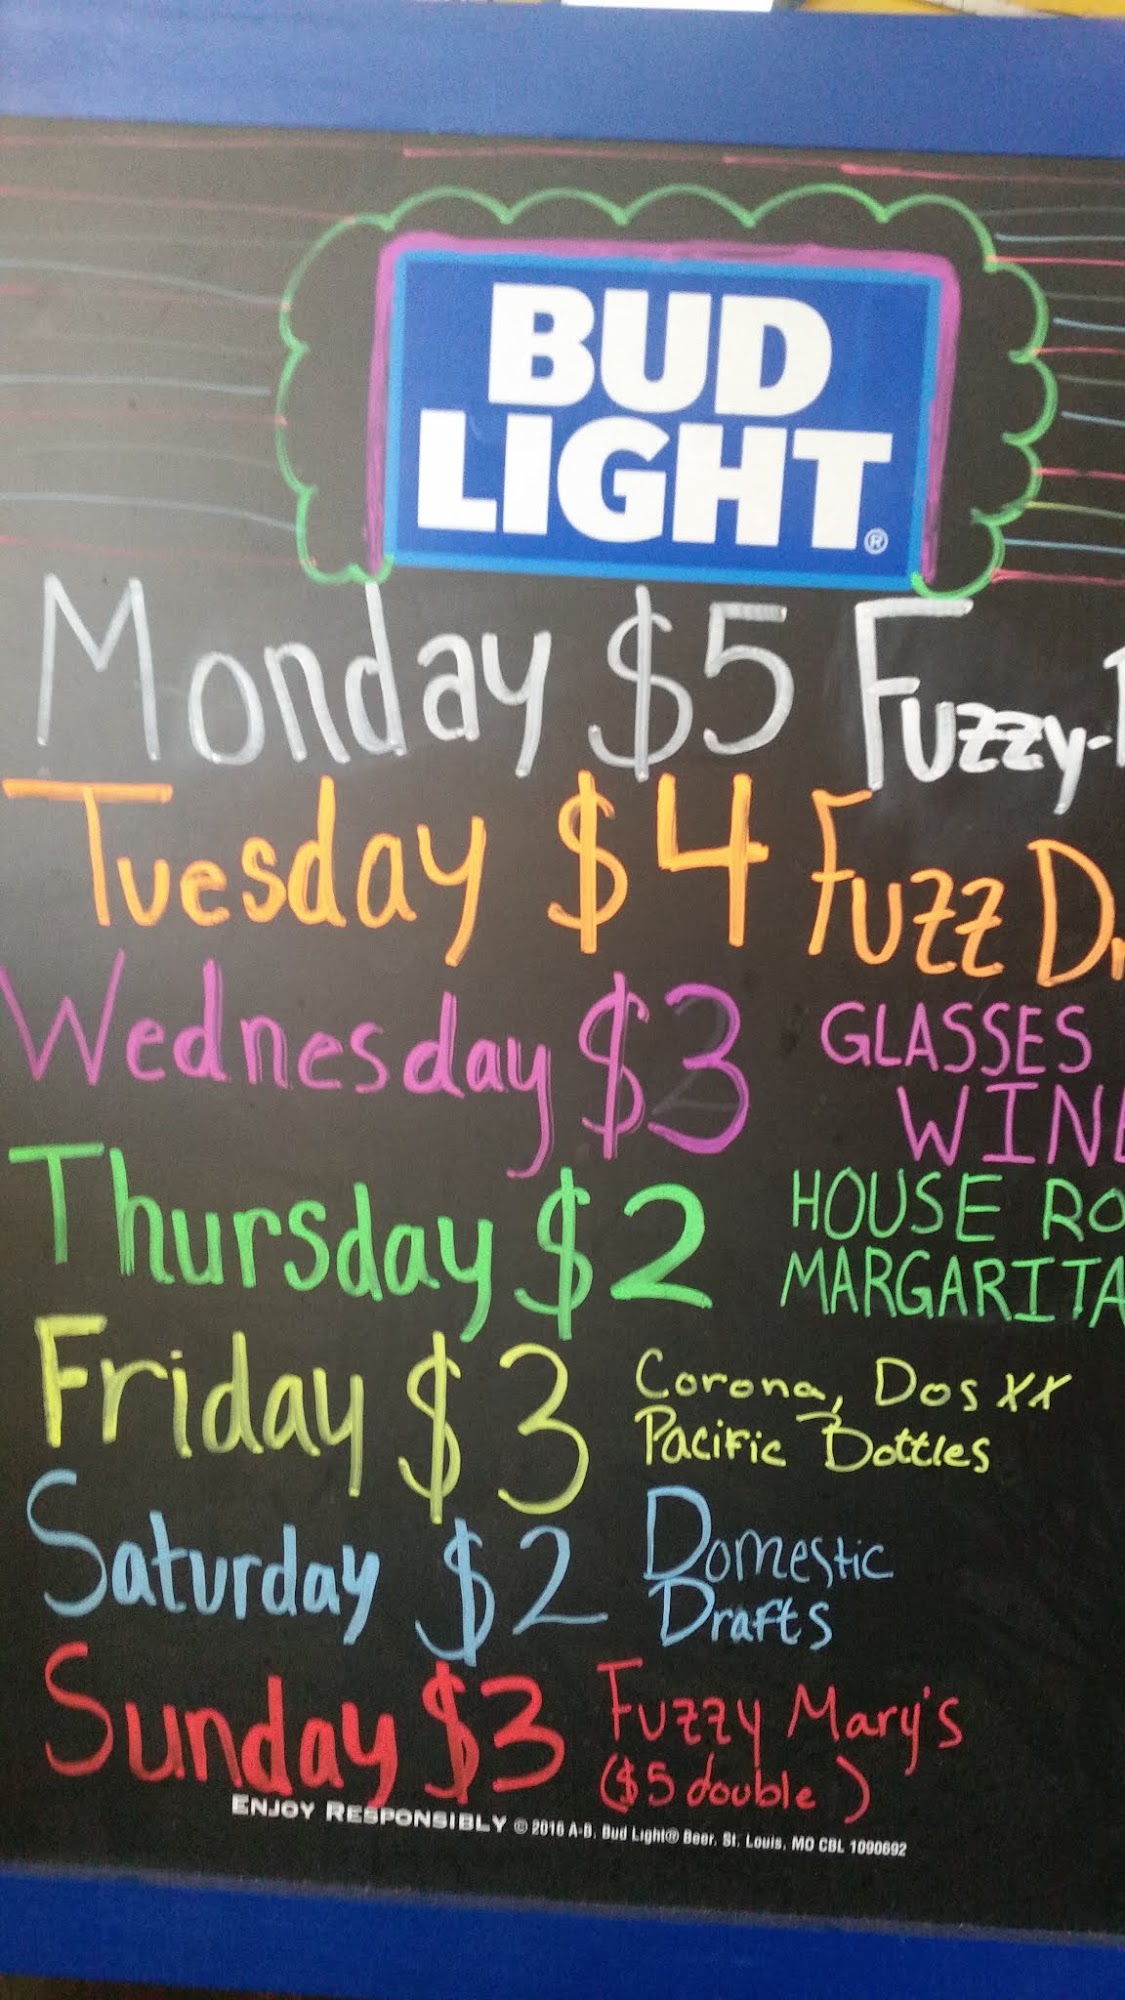 BUD
LIGHT®
Monday $5 Fuzzy-
Tuesday $4 Fuzz
Wednesday $3 GLASSES
WINE
Thursday $2 HOUSE
MARGARITA
Friday $3 Corona, Dos XX
Pacific Bottles
Saturday $2 Domestic
Drafts
Sunday $3 Fuzzy Mary's
($5 double)
ENJOY RESPONSIBLY © 2016 A-B, Bud Light® Beer, St. Louis, MO CBL 1090692